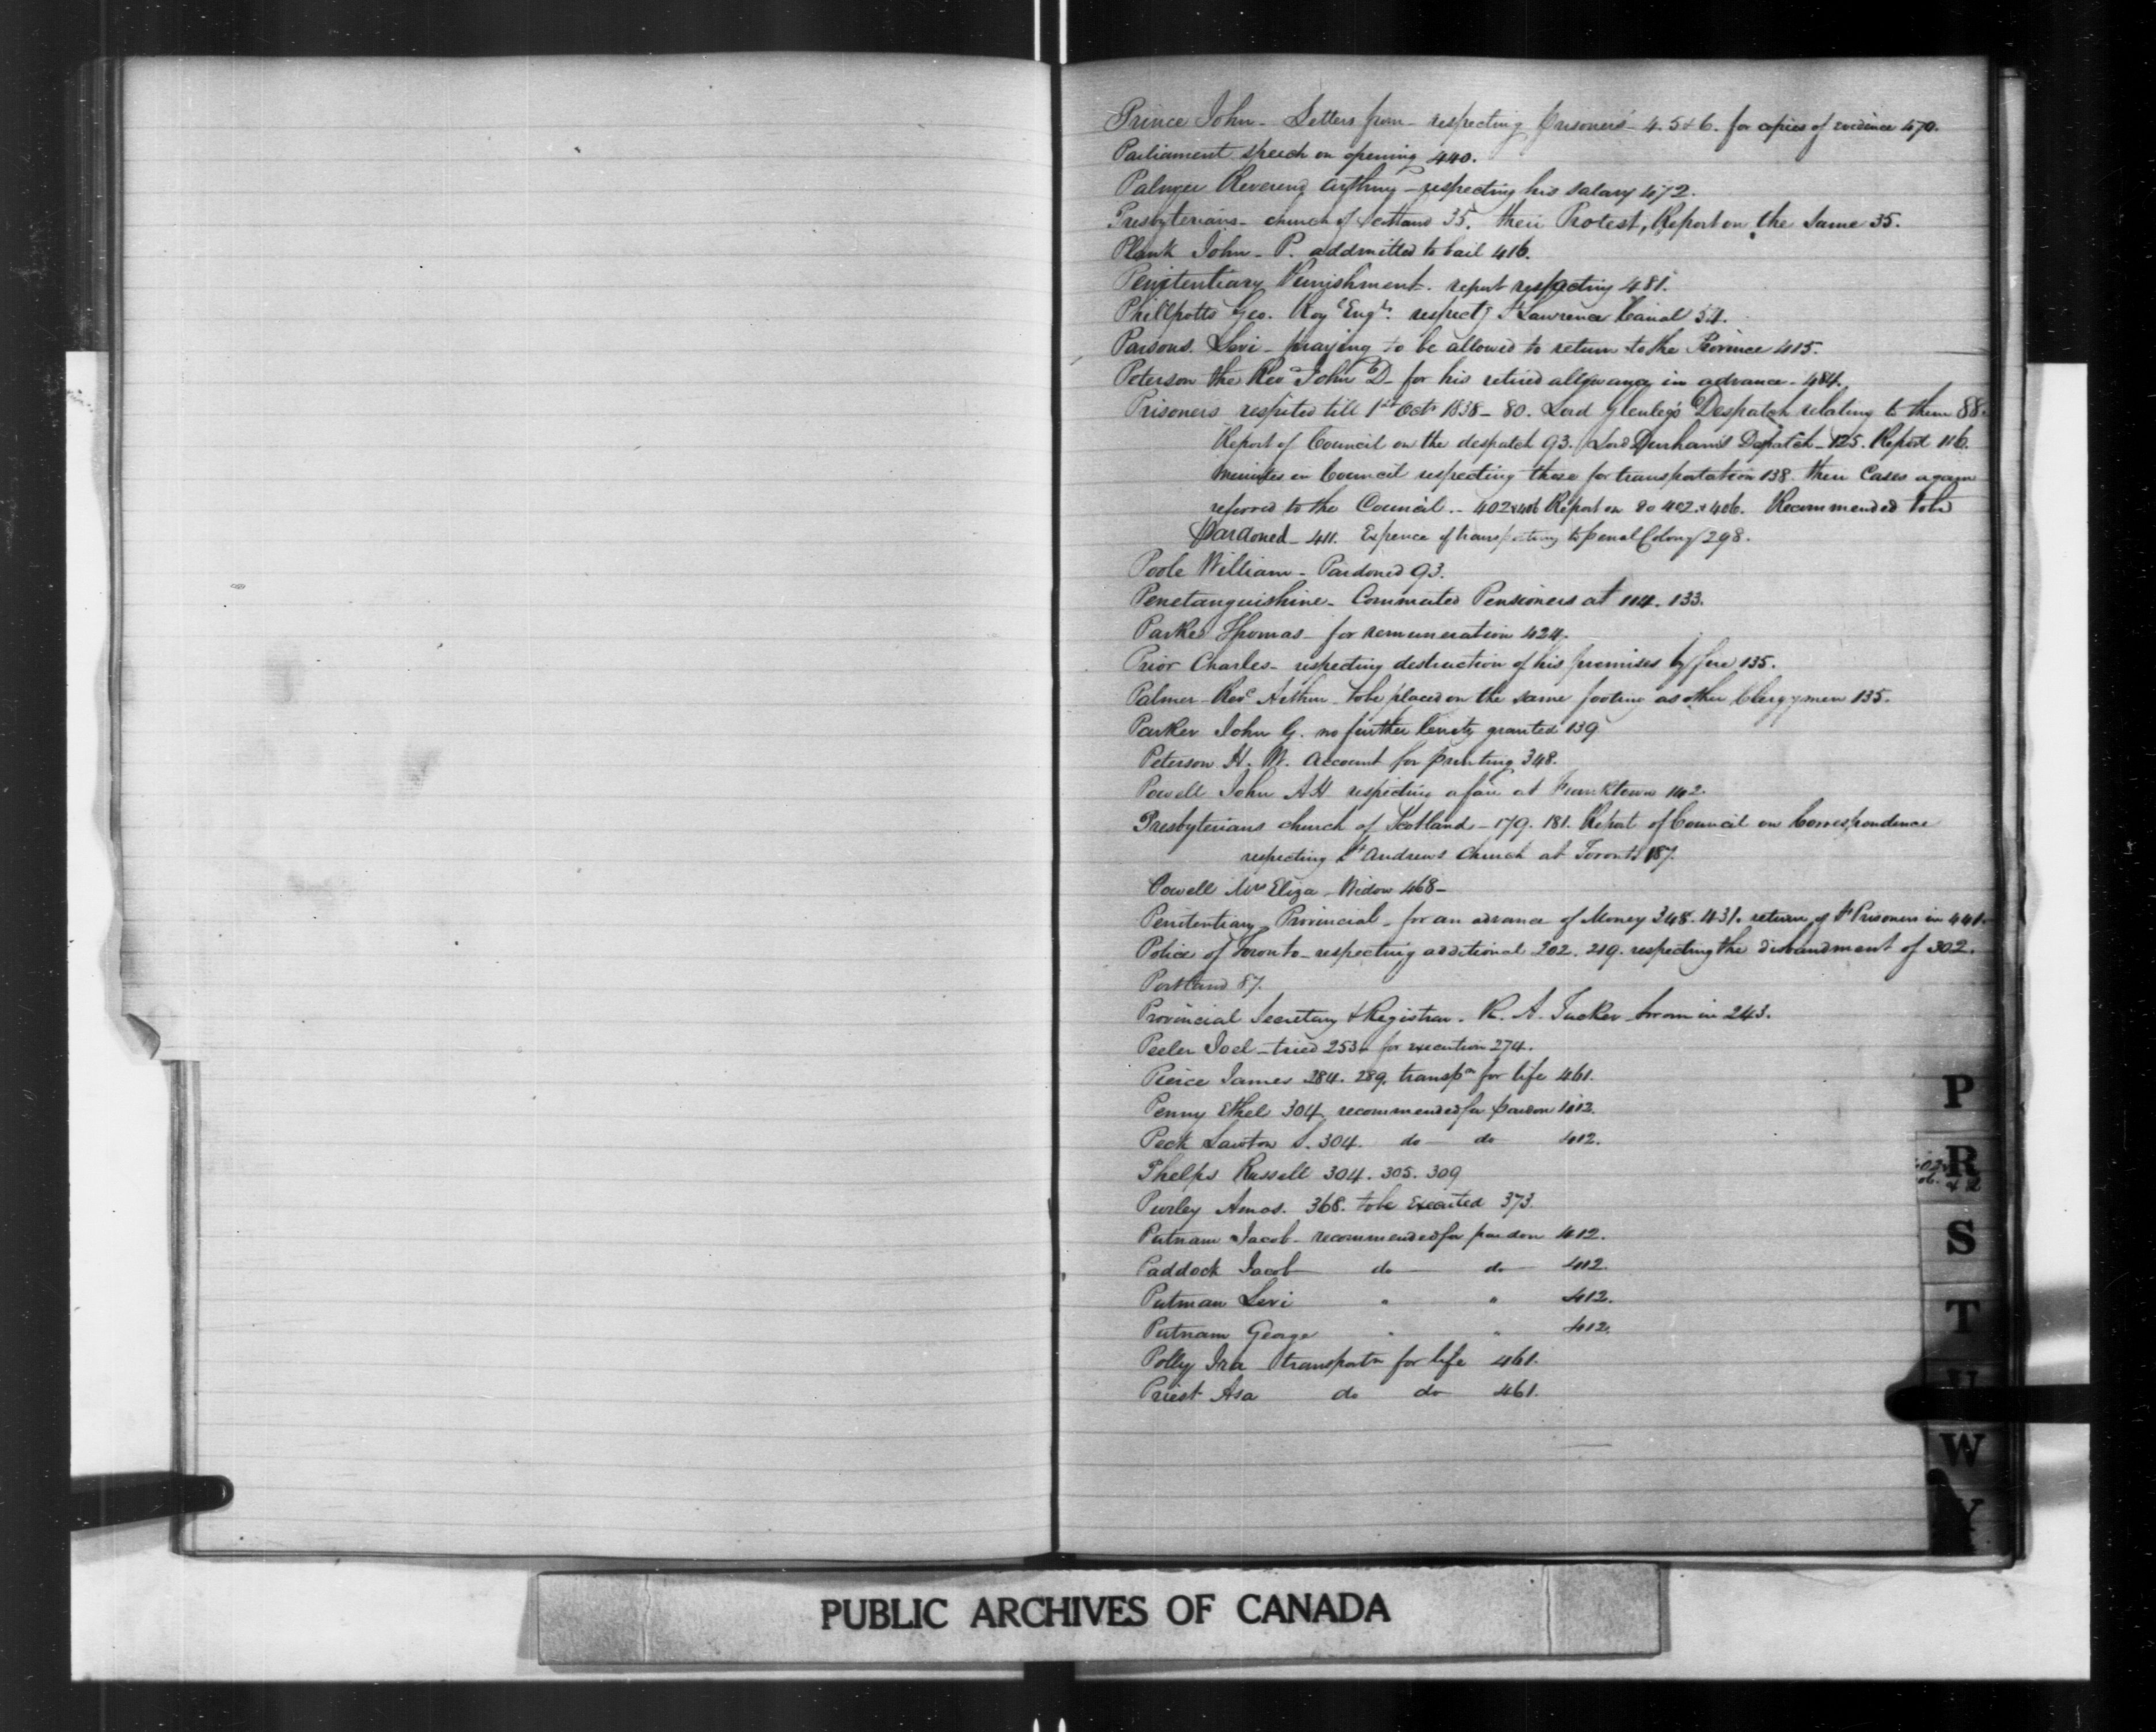 Prince John - Letters from - respecting Prisoners - 4. 5 & 6. for copies of evidence 470.
Parliament speech on opening 440.
Palmer Reverend - respecting his salary 472.
Presbyterians - church of Scotland 35. their Protest, Report on the Same 35.
Plank John - P. addmitted to bail 416.
Penitentiary Punishment. report respecting 481.
Phillpotts Geo. Roy Engrs. respectg St Lawrence Canal 54.
Parsons. Levi - praying to be allowed to return to the Province 415.
Peterson the Revd John D - for his retired allowance in advance - 484.
Prisoners respited till 1st Octr 1838 - 80. Lord Glenleg's Despatch relating to them 88.
Report of Council on the despatch 93. Lord Durham's Despatch - 125. Report 116.
Minutes in Council respecting those for transportation 138. their Cases again
referred to the Council. - 402 & 406 Report on 80 402. & 406. Recommended to be
Pardoned - 411. Expence of transporting to penal Colony 298.
Poole William - Pardoned 93.
Penetanguishine - Commuted Pensioners at 114. 133.
Parker Thomas - for remuneration 424.
Prior Charles - respecting destruction of his premises by fire 135.
Palmer Revd Arthur - to be placed on the same footing as other Clergymen 135.
Parker John G. no further lenity granted 139
Peterson H. W. Account for printing 348.
Powell John A H respecting a fair at Franktown 142.
Presbyterians church of Scotland - 179. 181. Report of Council on Correspondence
respecting St Andrews Church at Toronto 187.
Powell Mrs Eliza - Widow 468 -
Penitentiary Provincial - for an advance of Money 348. 431. return of Prisoners in 441.
Police of Toronto - respecting additional 202. 219. respecting the disbandment of 302.
Portland 87.
Provincial Secretary & Registrar. R. A. Tucker sworn in 243.
Peeler Joel - tried 253 - for execution 274.
Pierce James 284. 289. transpn for life 461.
Penny Ethel 304 recommended for pardon 412.
Peck Lawton S. 304. do do 412.
Phelps Russell 304. 305. 309
Purley Amos. 368. to be Executed 373.
Putnam Jacob - recommended for pardon 412.
Paddock Jacob do do 412.
Putman Levi " " 412.
Putnam George " " 412.
Polly Ira transportn for life 461.
Priest Asa do do 461.
P
R
S
T
U
W
Y
PUBLIC ARCHIVES OF CANADA